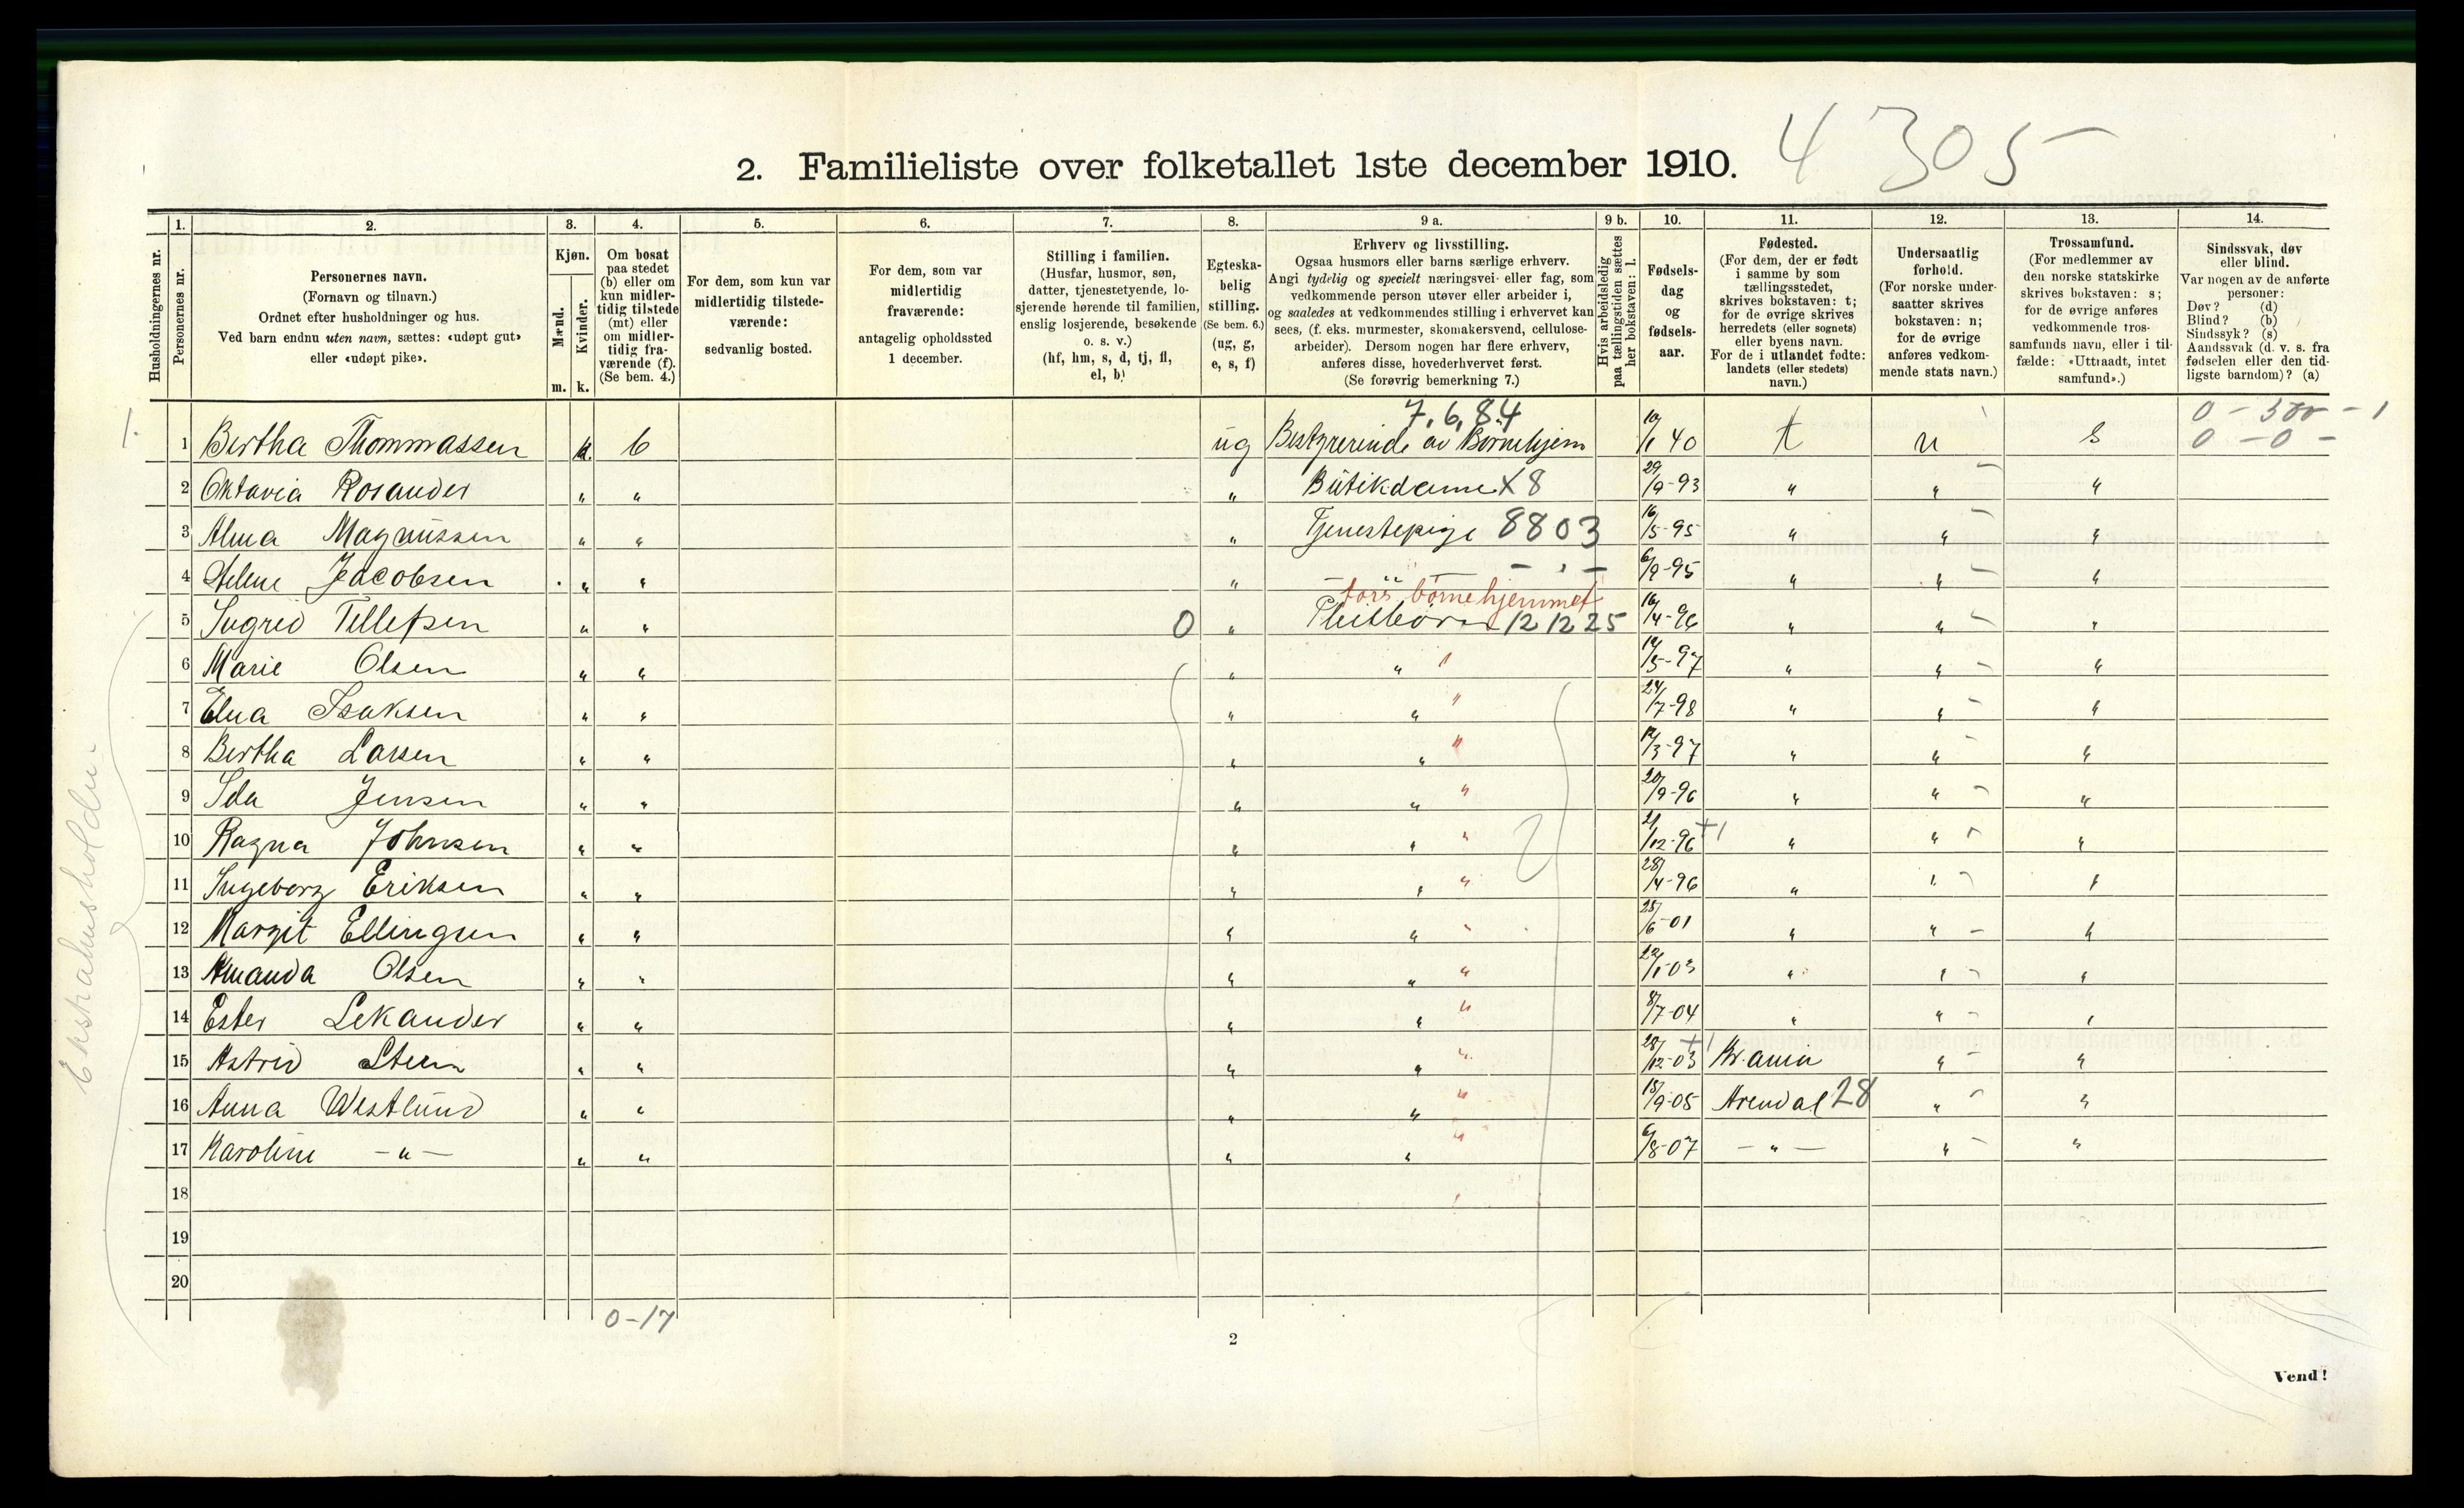 2. Familieliste over folketallet 1ste december 1910. 4305
1. 2. 3. 4. 5. 6. 7. 8. 9 a. 9 b. 10. 11. 12. 13. 14.
Husholdningernes nr.
Personernes nr.
Personernes navn.
(Fornavn og tilnavn.)
Ordnet efter husholdninger og hus.
Ved barn endnu uten navn, sættes: «udøpt gut»
eller «udøpt pike».
Kjøn.
Mænd.
Kvinder.
m. k.
Om bosat
paa stedet
(b) eller om
kun midler-
tidig tilstede
(mt) eller
om midler-
tidig fra-
værende (f).
(Se bem. 4.)
For dem, som kun var
midlertidig tilstede-
værende:
sedvanlig bosted.
For dem, som var
midlertidig
fraværende:
antagelig opholdssted
1 december.
Stilling i familien.
(Husfar, husmor, søn,
datter, tjenestetyende, lo-
sjerende hørende til familien,
enslig losjerende, besøkende
o. s. v.)
(hf, hm, s, d, tj, fl,
el, b)
Egteska-
belig
stilling.
(Se bem. 6.)
(ug, g,
e, s, f)
Erhverv og livsstilling.
Ogsaa husmors eller barns særlige erhverv.
Angi tydelig og specielt næringsvei eller fag, som
vedkommende person utøver eller arbeider i,
og saaledes at vedkommendes stilling i erhvervet kan
sees, (f. eks. murmester, skomakersvend, cellulose-
arbeider). Dersom nogen har flere erhverv,
anføres disse, hovederhvervet først.
(Se forøvrig bemerkning 7.)
Hvis arbeidsledig
paa tællingstiden sættes
her bokstaven: l.
Fødsels-
dag
og
fødsels-
aar.
Fødested.
(For dem, der er født
i samme by som
tællingsstedet,
skrives bokstaven: t;
for de øvrige skrives
herredets (eller sognets)
eller byens navn.
For de i utlandet fødte:
landets (eller stedets)
navn.)
Undersaatlig
forhold.
(For norske under-
saatter skrives
bokstaven: n;
for de øvrige
anføres vedkom-
mende stats navn.)
Trossamfund.
(For medlemmer av
den norske statskirke
skrives bokstaven: s;
for de øvrige anføres
vedkommende tros-
samfunds navn, eller i til-
fælde: «Uttraadt, intet
samfund».)
Sindssvak, døv
eller blind.
Var nogen av de anførte
personer:
Døv? (d)
Blind? (b)
Sindssyk? (s)
Aandssvak (d. v. s. fra
fødselen eller den tid-
ligste barndom)? (a)
7.6.84 0 - 300 - 1
1. 1 Bertha Thommassen k. b ug Bestyrerinde av Børnehjem 10/1 40 t n s 0 - 0 -
2 Oktavia Rosander " " " Butikdame X8 29/9-93 " " "
3 Alma Magnussen " " " Tjenestepige 8803 16/5-95 " " "
4 Helene Jacobsen " " " - " - 6/9-95 " " "
fors. børnehjemmet
5 Ingrid Tellefsen " " 0 " Pleiebørn 12 12 25 16/4-96 " " "
6 Marie Olsen " " " " 14/5-97 " " "
7 Elna Isaksen " " " " " 24/7-98 " " "
8 Bertha Larsen " " " " " 12/3-97 " " "
9 Ida Jensen " " " " " 20/9-96 " " "
10 Ragna Johnsen " " " " " 21/12-96 +1 " " "
11 Ingeborg Eriksen " " " " " 28/4-96 " " "
12 Margit Ellingsen " " " " " 25/6-01 " " "
13 Amanda Olsen " " " " " 22/1-03 " " "
14 Ester Lekander " " " " " 8/7-04 " " "
15 Astrid Steen " " " " " 28/12-03 +1 Kr.ania " "
16 Anna Westlund " " " " " 15/9-05 Arendal 28 " "
17 Karoline - " - " " " " " 6/8-07 - " - " "
18
19
20
Ekstrahusholdn.
0-17
2
Vend!